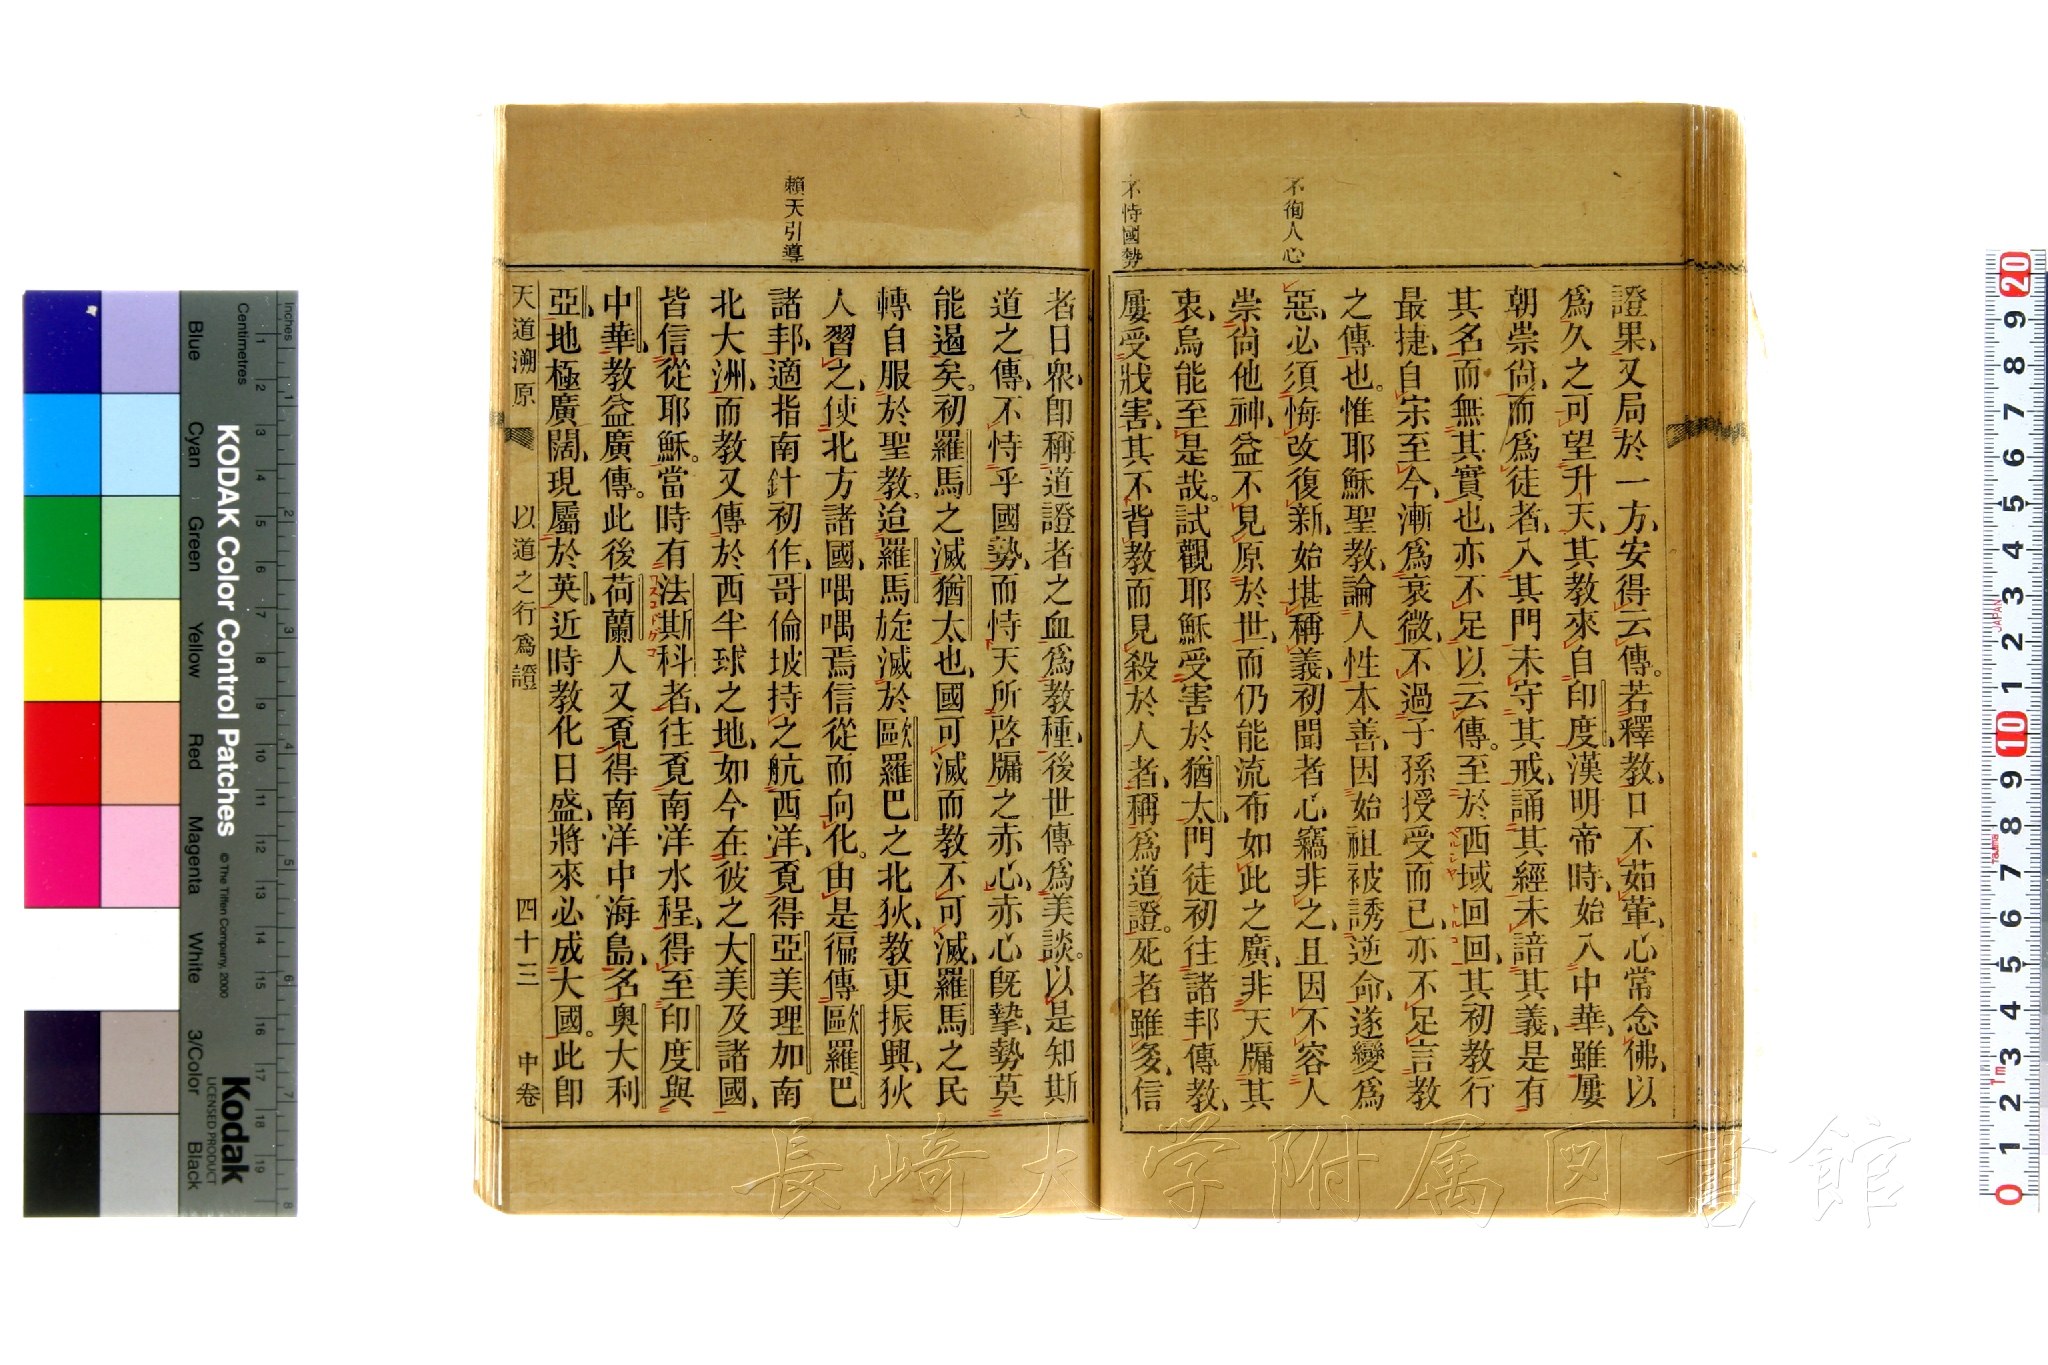 不徇人心
不恃國勢
證果、又局於一方、安得云傳。若釋教、口不茹葷、心常念佛、以
爲久之可望升天、其教來自印度、漢明帝時、始入中華、雖屢
朝崇尙、而爲徒者、入其門未守其戒、誦其經未諳其義、是有
其名而無其實也、亦不足以云傳。至於西域回回、其初教行
最捷、自宗至今、漸爲衰微、不過子孫授受而已、亦不足言教
之傳也。惟耶穌聖教、論人性本善、因始祖被誘逆命、遂變爲
惡、必須悔改復新、始堪稱義、初聞者心竊非之、且因不容人
崇尙他神、益不見原於世、而仍能流布如此之廣、非天牖其
衷、烏能至是哉。試觀耶穌受害於猶太、門徒初往諸邦傳教、
屢受戕害、其不背教而見殺於人者、稱爲道證。死者雖多、信
賴天引導
者日衆、卽稱道證者之血爲教種、後世傳爲美談。以是知斯
道之傳、不恃乎國勢、而恃天所啓牖之赤心、赤心旣摯、勢莫
能遏矣。初羅馬之滅猶太也、國可滅而教不可滅、羅馬之民
轉自服於聖教。迨羅馬旋滅於歐羅巴之北狄、教更振興、狄
人習之、使北方諸國、喁喁焉信從而向化。由是徧傳歐羅巴
諸邦、適指南針初作、哥倫坡持之航西洋、覔得亞美理加南
北大洲、而教又傳於西半球之地、如今在彼之大美及諸國、
皆信從耶穌。當時有法斯科者、往覔南洋水程、得至印度與
中華、教益廣傳。此後荷蘭人又覔得南洋中海島、名奧大利
亞、地極廣闊、現屬於英、近時教化日盛、將來必成大國。此卽
天道溯原 以道之行爲證 四十三 中卷
KODAK Color Control Patches
© The Tiffen Company, 2000
Kodak
LICENSED PRODUCT
Inches
Centimetres
Blue
Cyan
Green
Yellow
Red
Magenta
White
3/Color
Black
JAPAN
長崎大学附属図書館